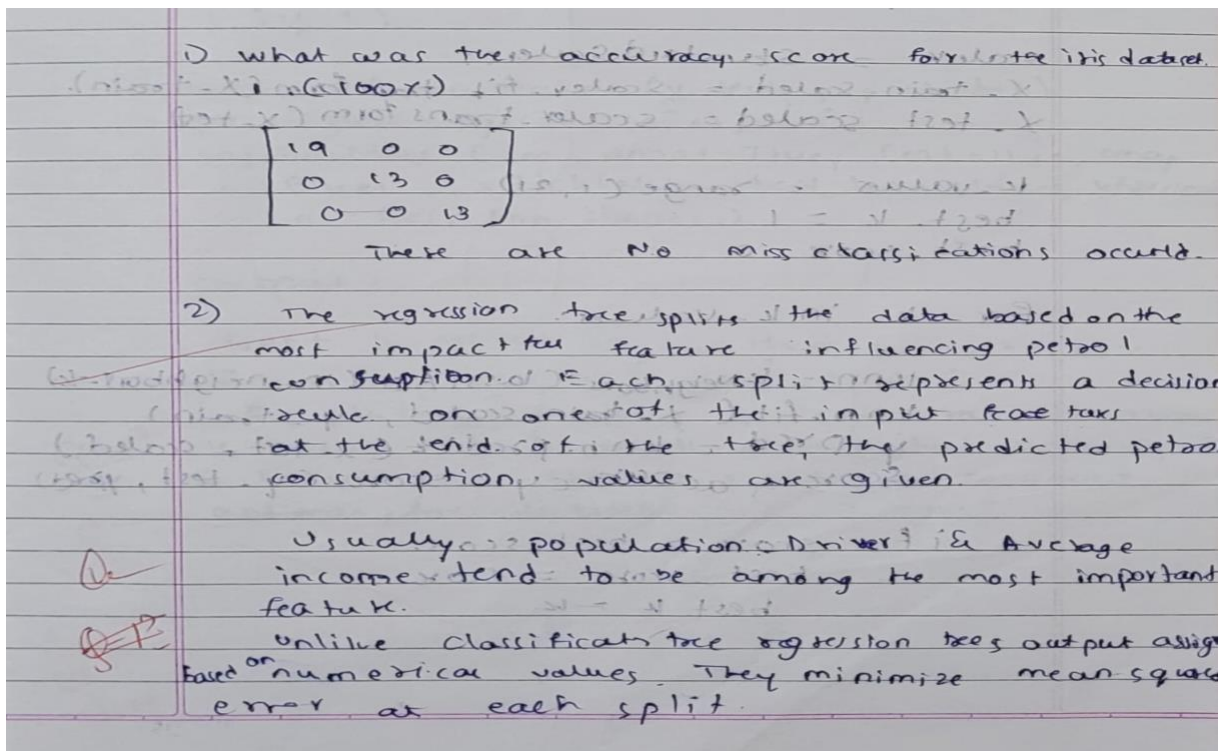 1) what was the accuracy score for the iris dataset.
1.0 (100%)
19 0 0
0 13 0
0 0 13
There are No miss classifications occurd.
2) The regression tree splits the data based on the
most impactful feature influencing petrol
consuption. Each split represents a decision
rule on one of the input features
at the end of the tree, the predicted petro
consumption values are given.
Usually population Driver & Average
income tend to be among the most important
feature.
Unlike classificat tree regression trees output assig
based on numerical values. They minimize mean square
error at each split.